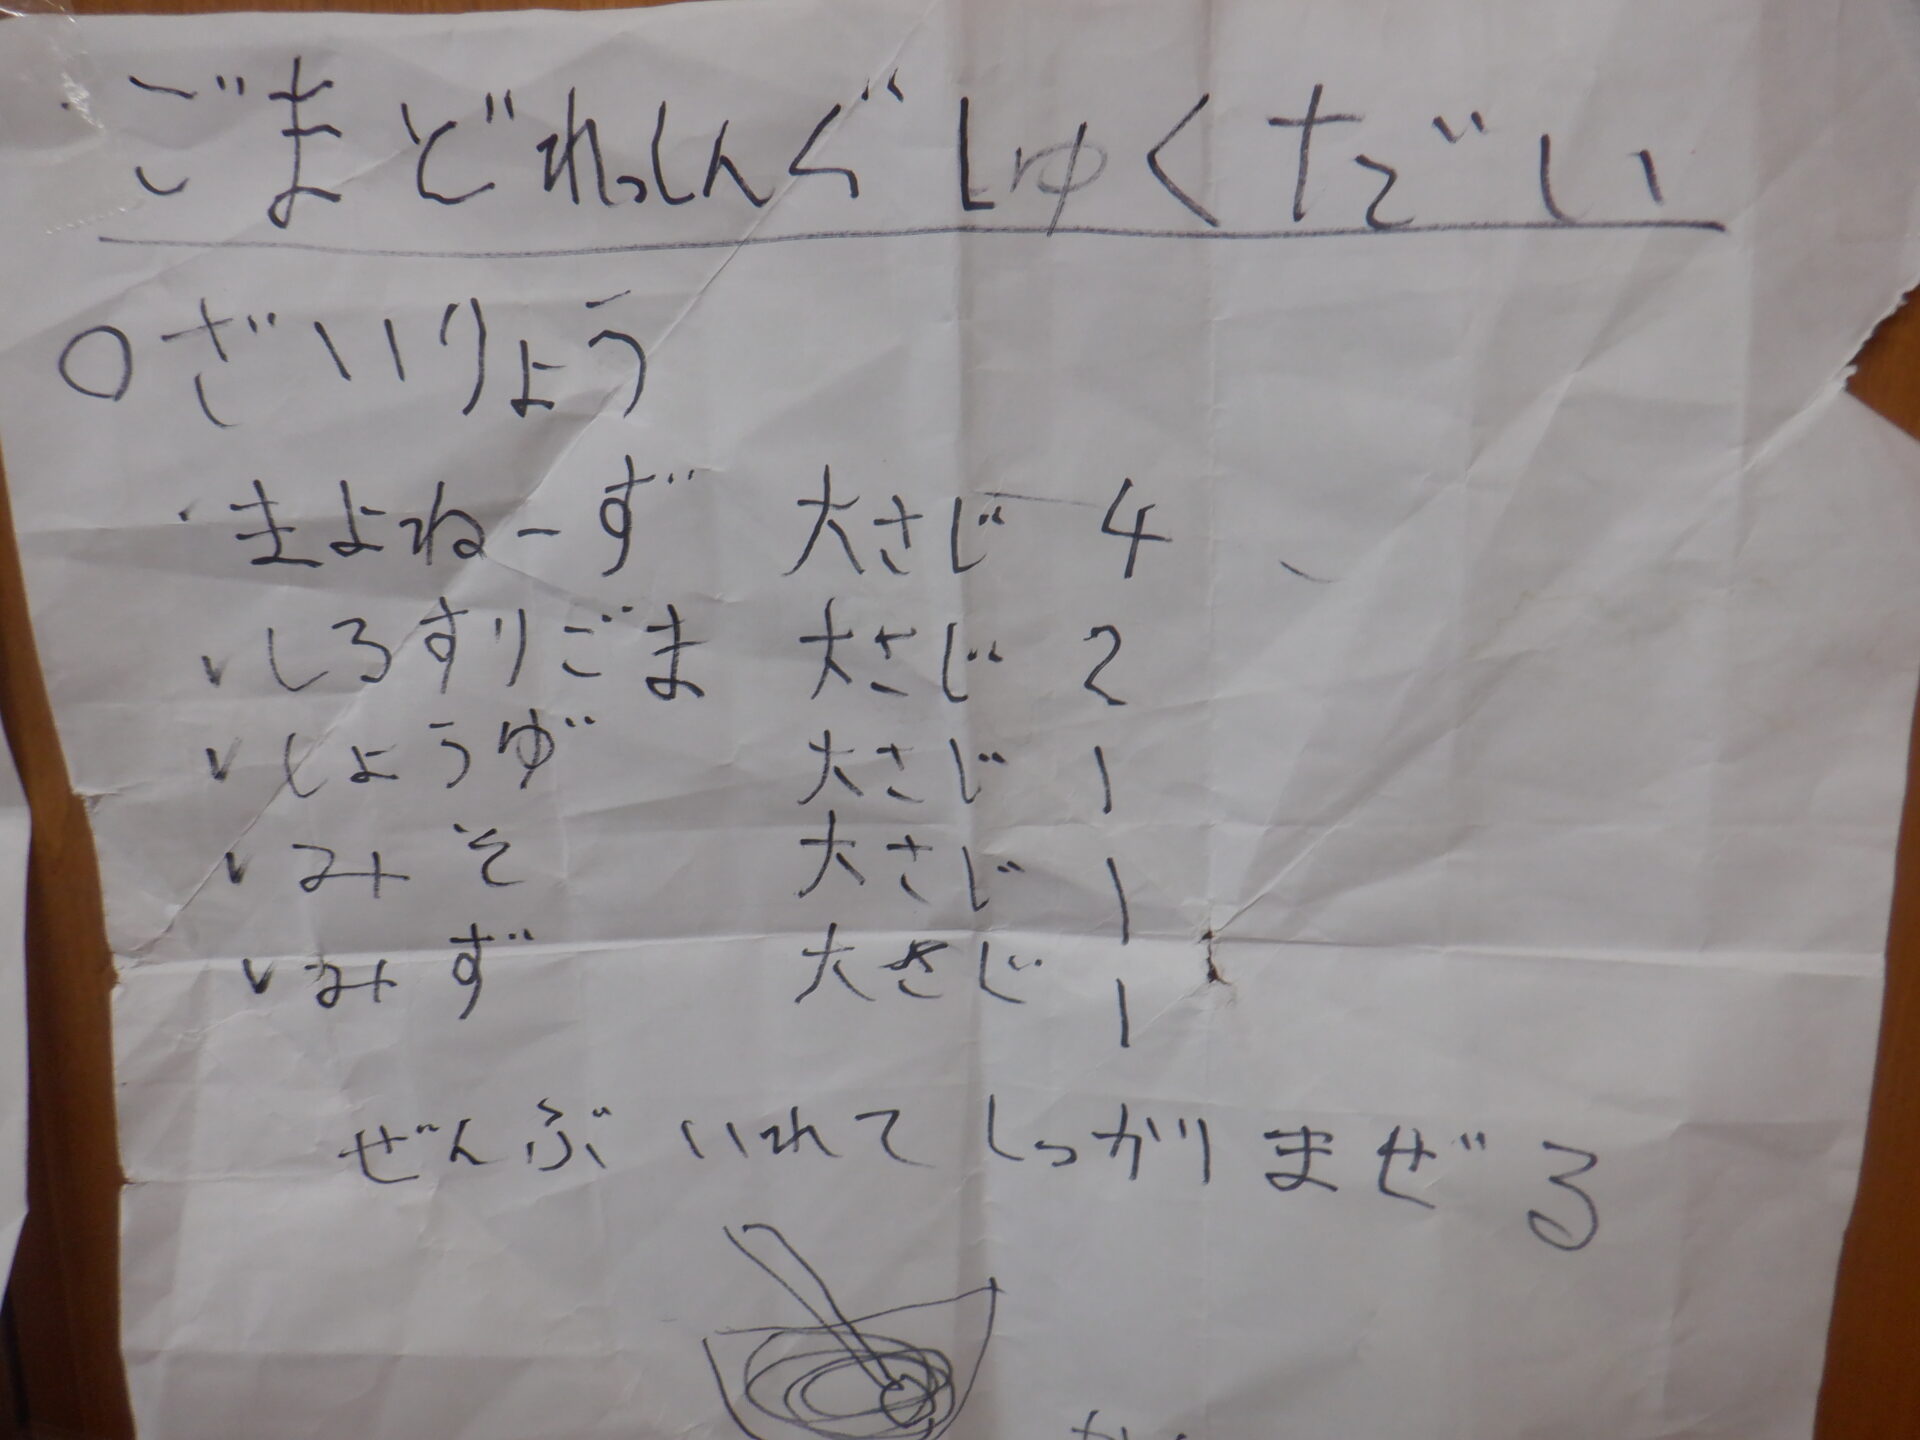 ごまどれっしんぐ しゅくだい
○ざいりょう
・まよねーず 大さじ 4
・しろすりごま 大さじ 2
・しょうゆ゛ 大さじ 1
・みそ 大さじ 1
・みず 大さじ 1
ぜんぶ いれて しっかり まぜる